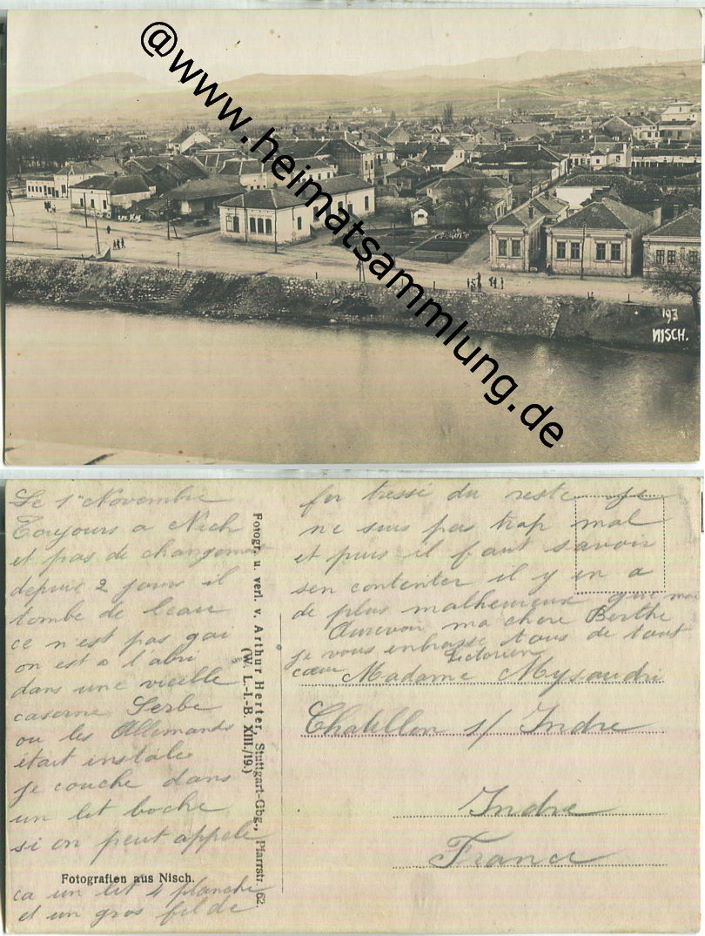 @www.heimatsammlung.de
193
NISCH.
Le 1er Novembre
Toujours a Nich
et pas de changement
depuis 2 jours il
tombe de leau
ce n'est pas gai
on est a l'abri
dans une vieille
caserne Serbe
ou les Allemands
etait instale
je couche dans
un lit boche
si on peut appele
ca un lit 4 planche
et un gros fil de
Fotografien aus Nisch.
Fotogr. u. verl. v. Arthur Herter, Stuttgart-Gbg., Pfarrstr. 62.
(W. L.-I.-B. XIII./19.)
fer tressé du reste je
ne suis pas trop mal
et puis il faut savoir
sen contenter il y en a
de plus malheureux que moi
Aurevoir ma chere Berthe
je vous enbrasse tous de tout
cœur
Madame Mysaudri
Chatillon s/ Indre
Indre
France